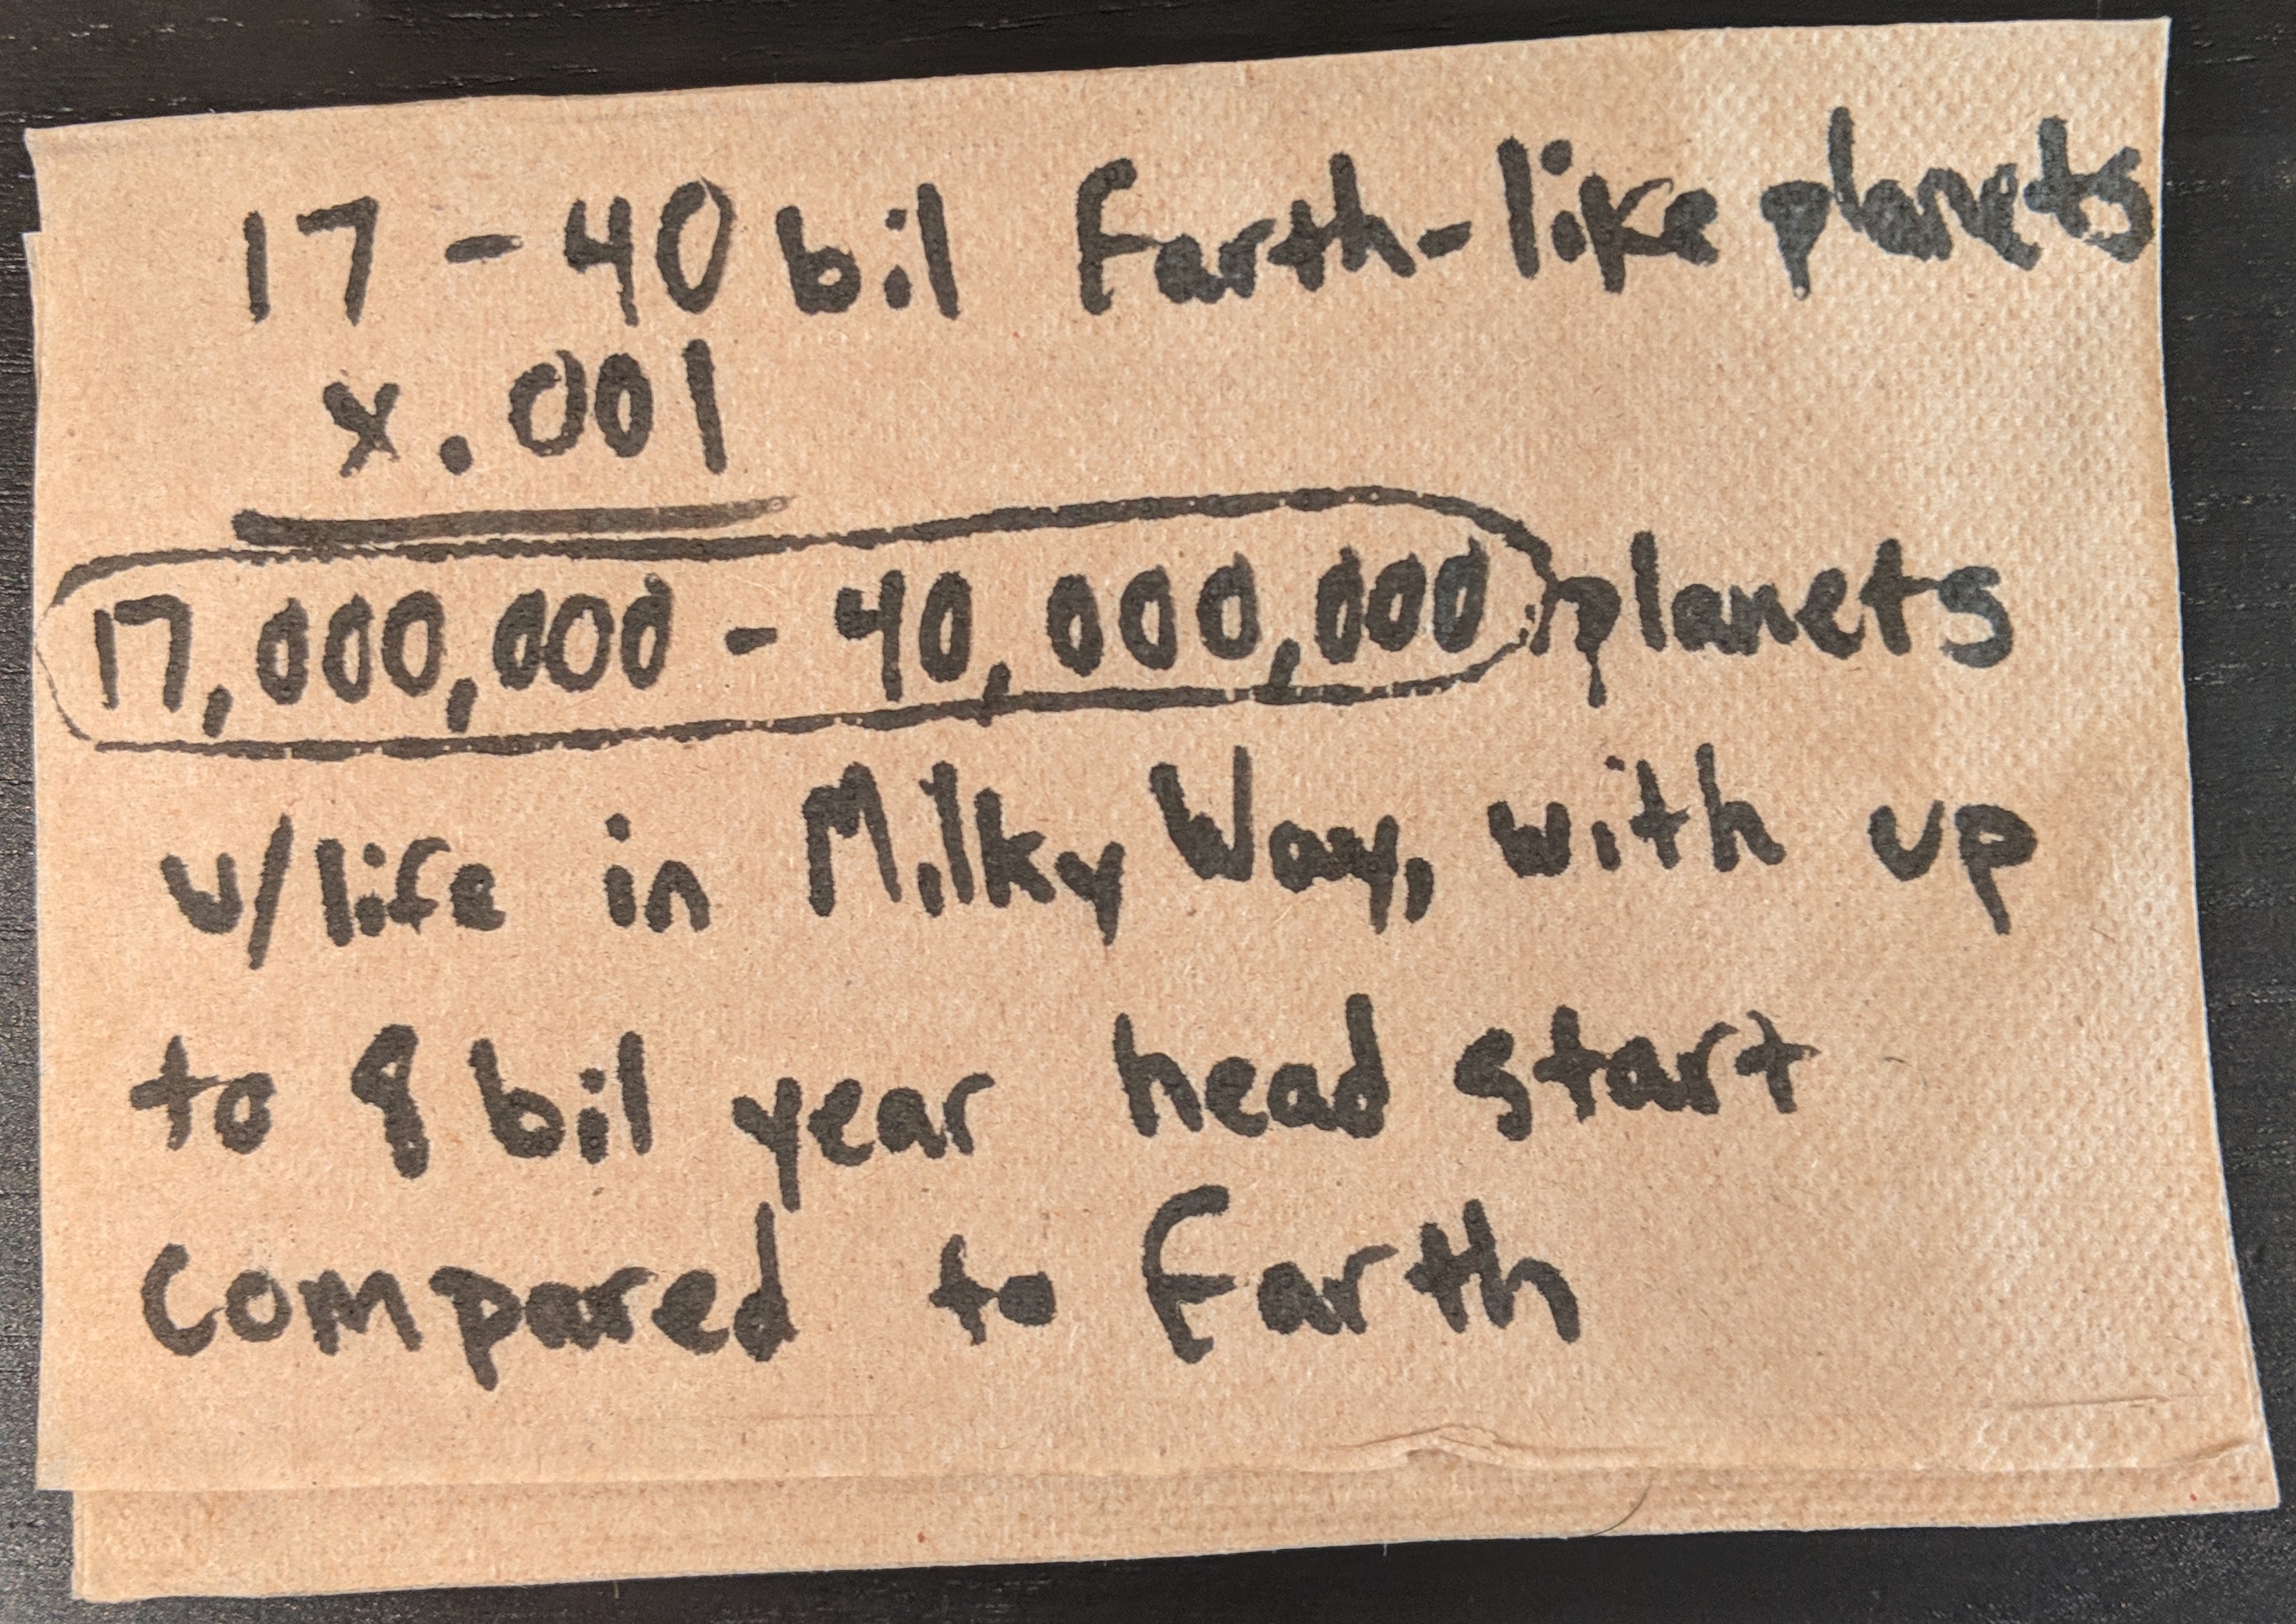 17 - 40 bil Earth-like planets
x .001
17,000,000 - 40,000,000 planets
w/life in Milky Way, with up
to 8 bil year head start
compared to Earth